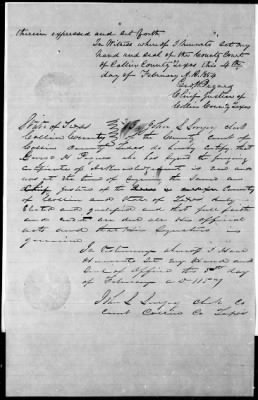 therein expressed and set forth
In Witness whereof I hereunto set my
hand and seal of the County Court
of Collin County Texas this 4th
day of February A.D. 1854
Chief Justice of
Collin County Texas
State of Texas I John L. Lovejoy clerk
Collin County of the County Court of
Collin County Texas, do hereby certify that
George H. Pegues who has signed the foregoing
certificate of is and
was at the time of signing the same
Chief Justice of the County
of Collin and State of Texas duly
elected and and that full faith
and credit are due all his official
acts and that his signature is
genuine
In testimony whereof I have
hereunto set my hand and
seal of office the 5th day
of February A D
John L Lovejoy Clk Co
Court Collin Co Texas